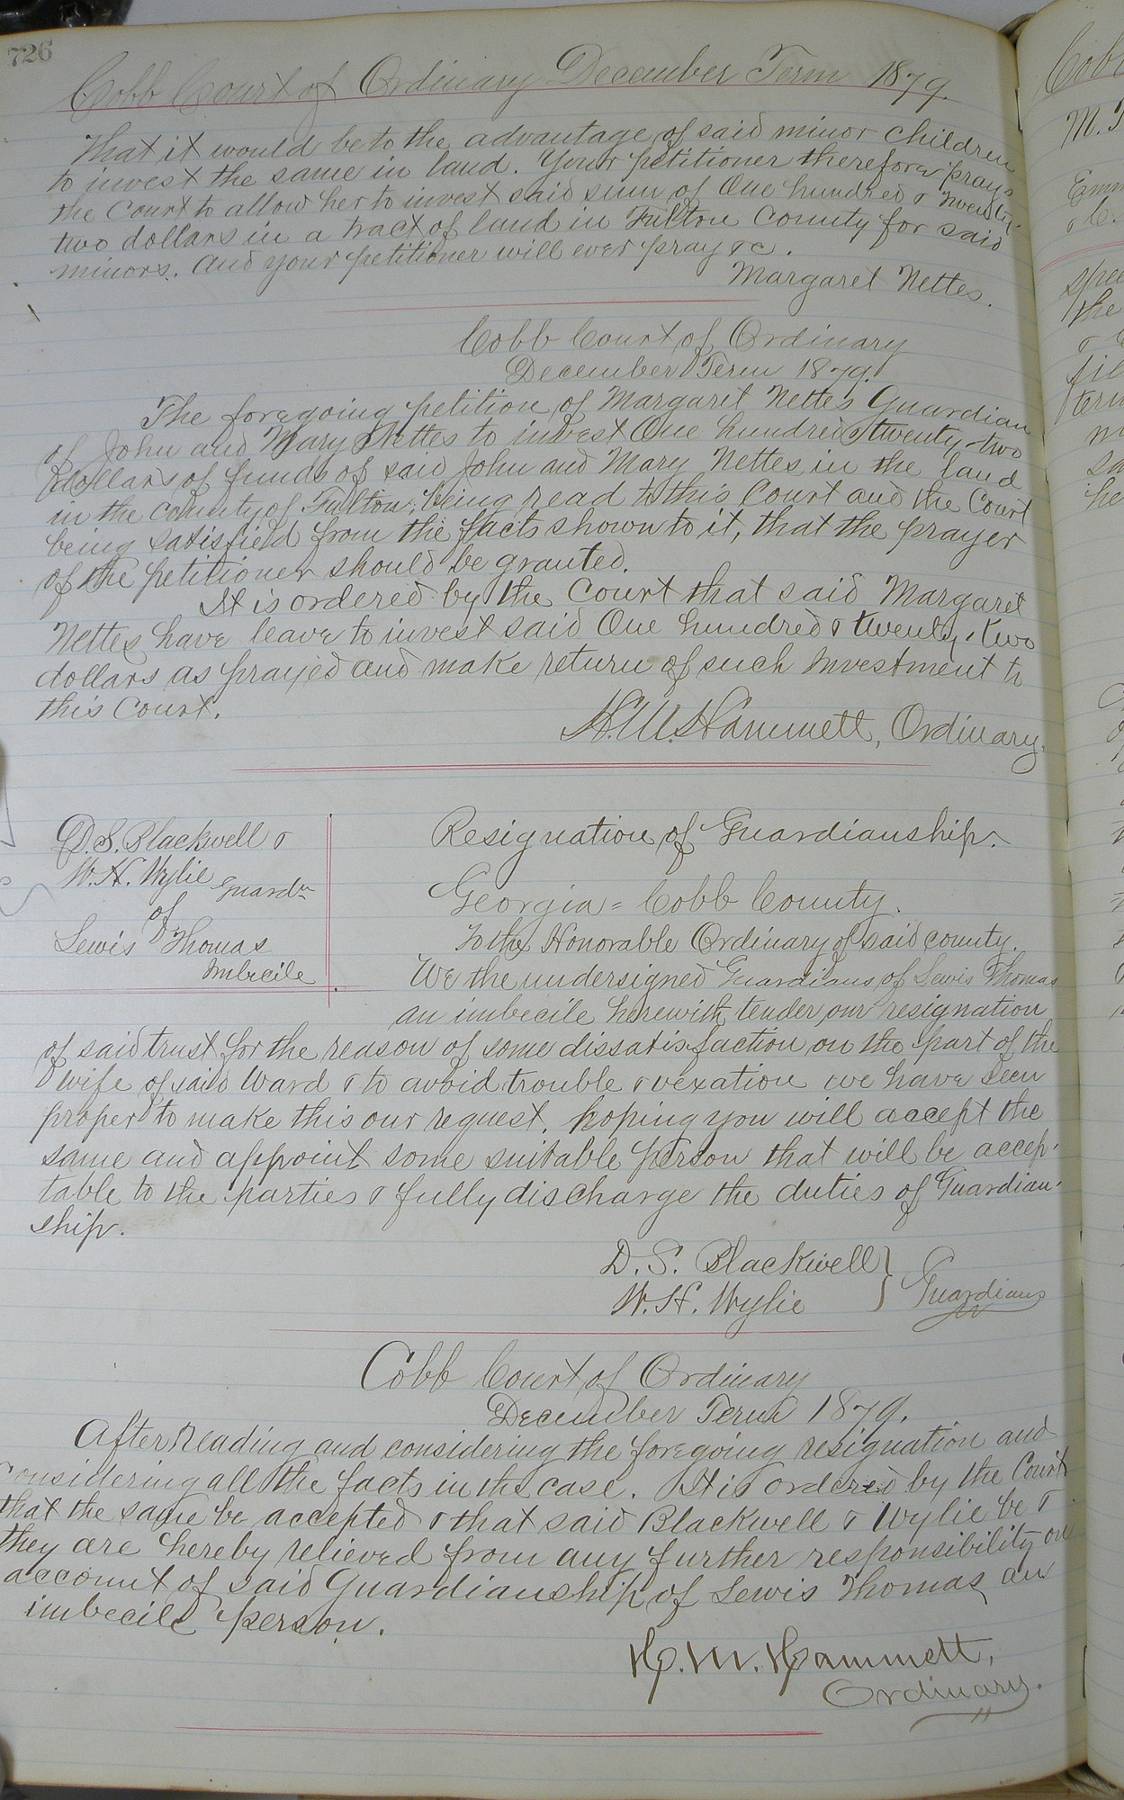 726
Cobb Court of Ordinary December Term 1879.
That it would be to the advantage of said minor children
to invest the same in land. Your petitioner therefore prays
the Court to allow her to invest said sum of One hundred & twenty-
two dollars in a tract of land in Fulton County for said
minors. And your petitioner will ever pray &c.
Margaret Nettes.
Cobb Court of Ordinary
December Term 1879.
The foregoing petition of Margaret Nettes Guardian
of John and Mary Nettes to invest One hundred & twenty-two
dollars of funds of said John and Mary Nettes in the land
in the county of Fulton, being read to this Court and the Court
being satisfied from the facts shown to it, that the prayer
of the petitioner should be granted.
It is ordered by the Court that said Margaret
Nettes have leave to invest said One hundred & twenty-two
dollars as prayed and make return of such investment to
this Court.
H.M. Hammett, Ordinary.
D.S. Blackwell &
W.H. Wylie Guardn
of
Lewis Thomas
Imbecile
Resignation of Guardianship.
Georgia = Cobb County.
To the Honorable Ordinary of said county.
We the undersigned Guardians of Lewis Thomas
an imbecile herewith tender our resignation
of said trust for the reason of some dissatisfaction on the part of the
wife of said Ward & to avoid trouble & vexation we have seen
proper to make this our request. hoping you will accept the
same and appoint some suitable person that will be accep-
table to the parties & fully discharge the duties of Guardian-
ship.
D. S. Blackwell }
W. H. Wylie } Guardians
Cobb Court of Ordinary
December Term 1879.
After Reading and considering the foregoing resignation and
considering all the facts in the case. It is ordered by the Court
that the same be accepted & that said Blackwell & Wylie be &
they are hereby relieved from any further responsibility on
account of said Guardianship of Lewis Thomas an
imbecile person.
H. M. Hammett,
Ordinary.